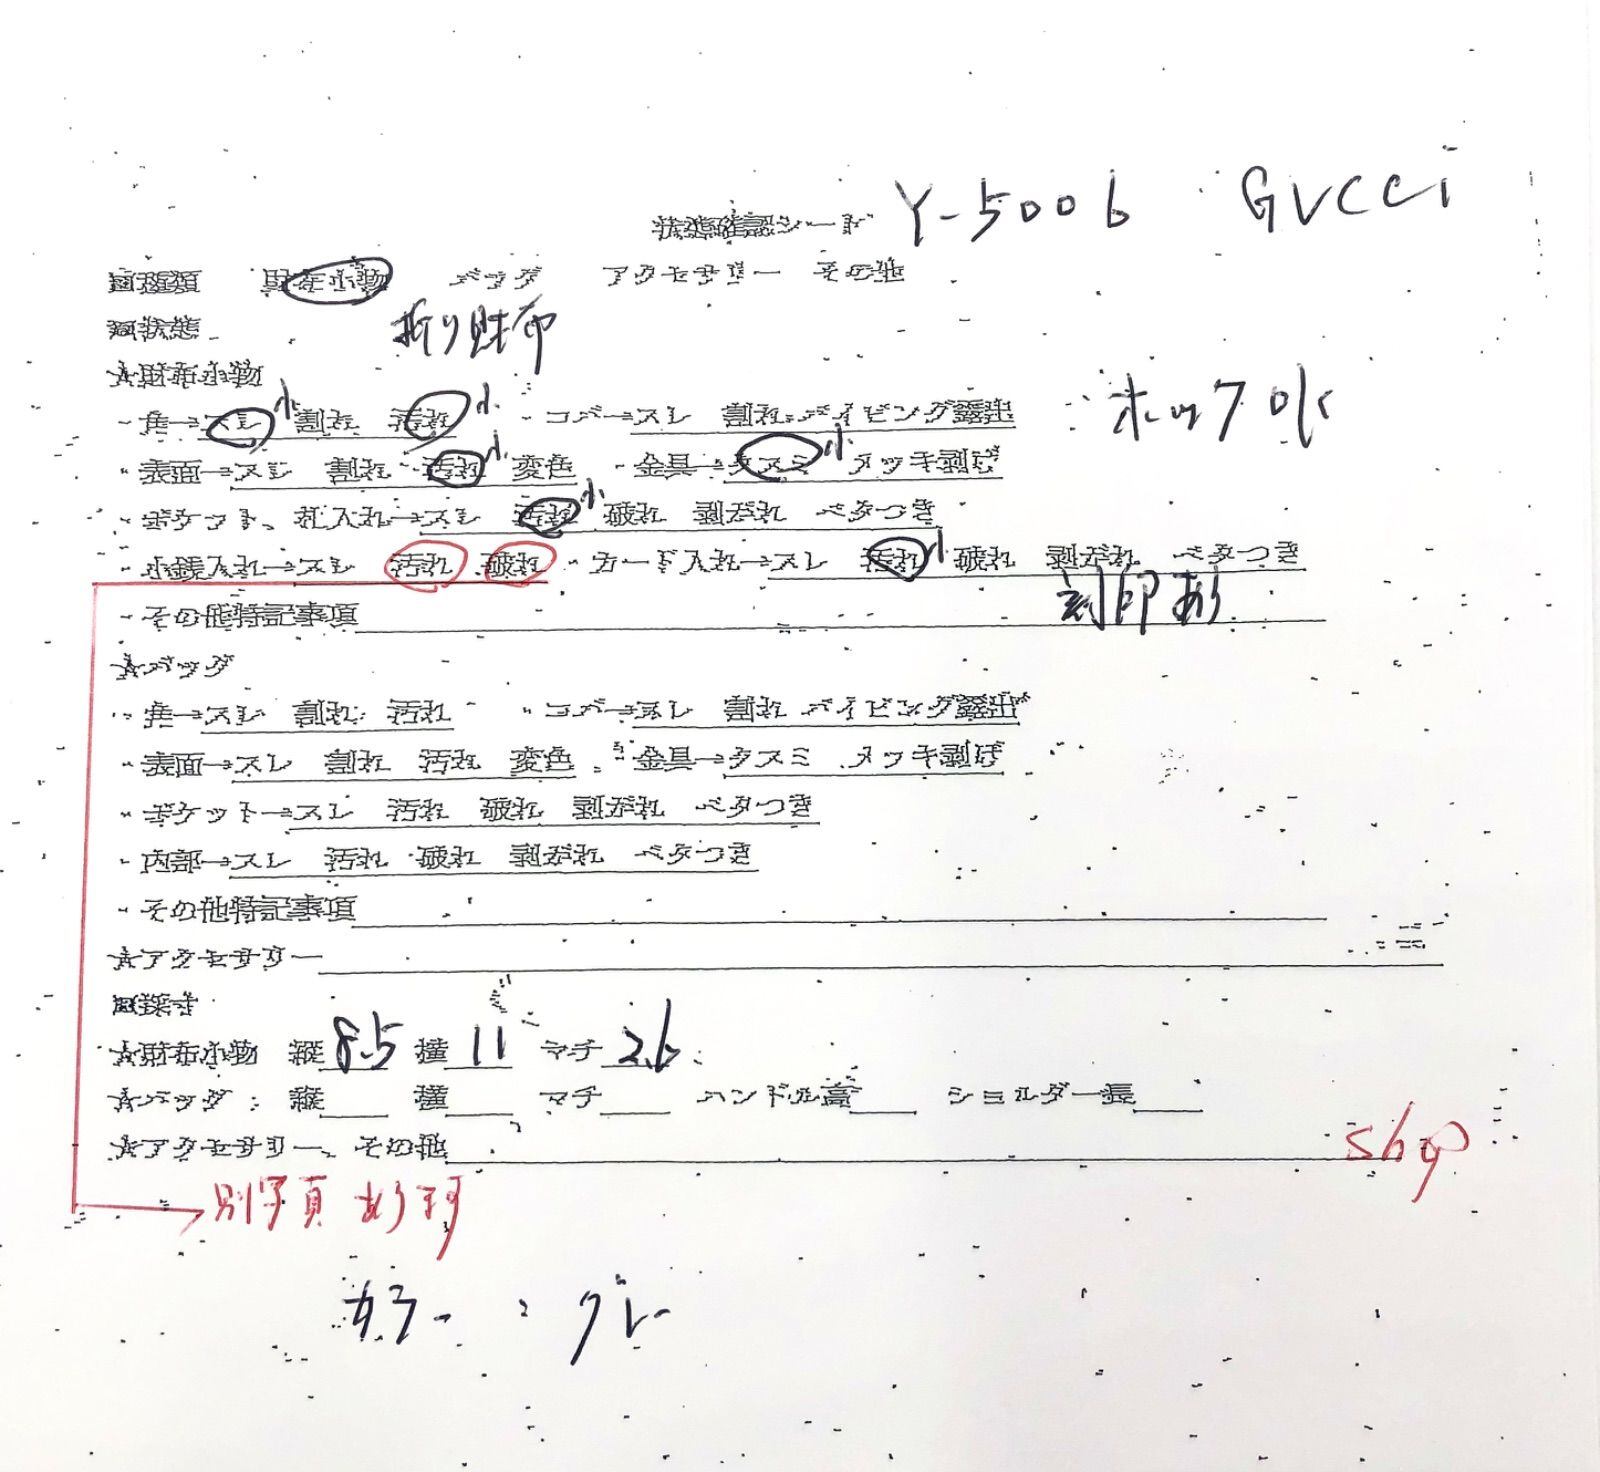 状態確認シート Y-5006 GUCCI
回種類 財布小物 バッグ アクセサリー その他
回状態 折り財布
★財布小物
・角→スレ小 割れ 汚れ小 ・コバ→スレ 割れ パイピング露出
・表面→スレ 割れ 汚れ小 変色 ・金具→クスミ小 メッキ剥げ
・ポケット、札入れ→スレ 汚れ小 破れ 剥がれ ベタつき
・小銭入れ→スレ 汚れ 破れ ・カード入れ→スレ 汚れ小 破れ 剥がれ ベタつき
・その他特記事項 刻印あり
★バッグ
・角→スレ 割れ 汚れ ・コバ→スレ 割れ パイピング露出
・表面→スレ 割れ 汚れ 変色 ・金具→クスミ メッキ剥げ
・ポケット→スレ 汚れ 破れ 剥がれ ベタつき
・内部→スレ 汚れ 破れ 剥がれ ベタつき
・その他特記事項
★アクセサリー
回採寸
★財布小物 縦8.5 横11 マチ2.6
★バッグ 縦 横 マチ ハンドル高 ショルダー長
★アクセサリー、その他 shop
カラー：グレー